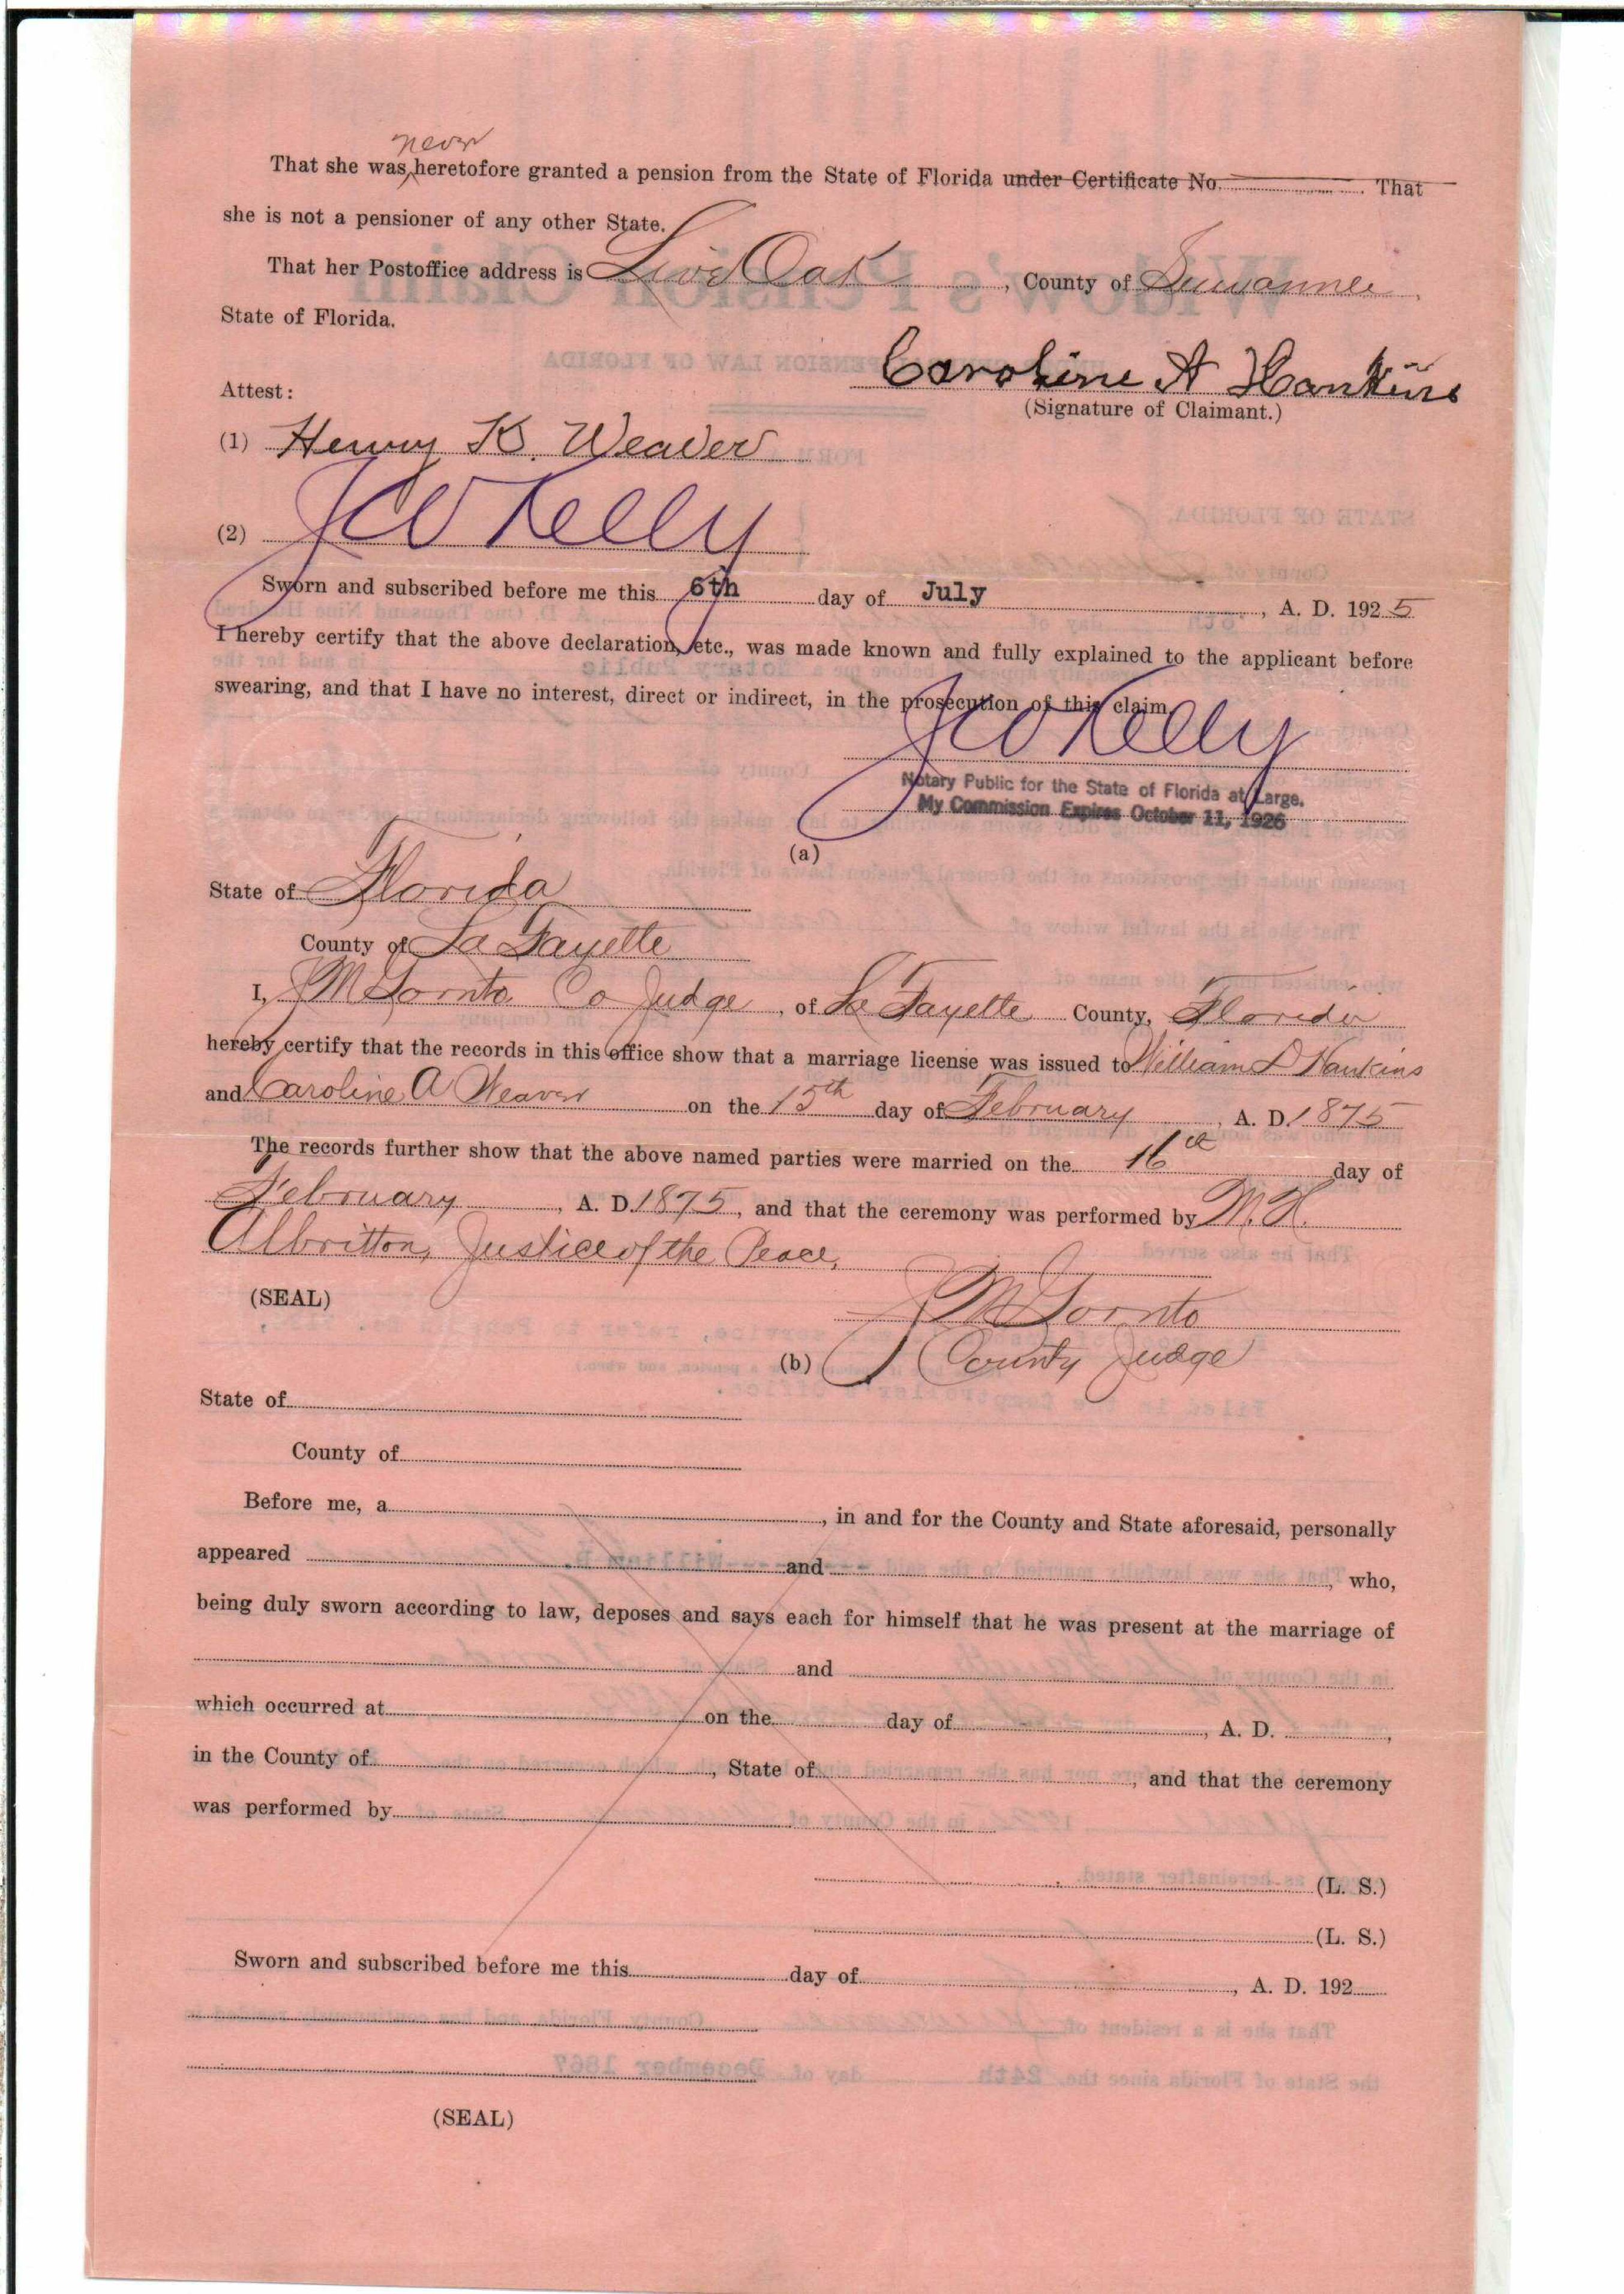 never
That she was heretofore granted a pension from the State of Florida under Certificate No. ........ That
she is not a pensioner of any other State.
That her Postoffice address is Live Oak, County of Suwannee,
State of Florida.
Caroline A Hankins
Attest:
(Signature of Claimant.)
(1) Henry K. Weaver
(2) J W Kelly
Sworn and subscribed before me this 6th day of July, A. D. 1925
I hereby certify that the above declaration, etc., was made known and fully explained to the applicant before
swearing, and that I have no interest, direct or indirect, in the prosecution of this claim.
J W Kelly
Notary Public for the State of Florida at Large.
My Commission Expires October 11, 1926
(a)
State of Florida
County of La Fayette
I, J M Co Judge, of La Fayette County, Florida
hereby certify that the records in this office show that a marriage license was issued to William D Hankins
and Caroline A Weaver on the 15th day of February, A. D. 1875
The records further show that the above named parties were married on the 16th day of
February, A. D. 1875, and that the ceremony was performed by M. H.
Albritton, Justice of the Peace,
(SEAL)
J M
(b) County Judge
State of
County of
Before me, a, in and for the County and State aforesaid, personally
appeared and, who,
being duly sworn according to law, deposes and says each for himself that he was present at the marriage of
and
which occurred at on the day of, A. D. ,
in the County of, State of, and that the ceremony
was performed by
(L. S.)
(L. S.)
Sworn and subscribed before me this day of, A. D. 192
(SEAL)